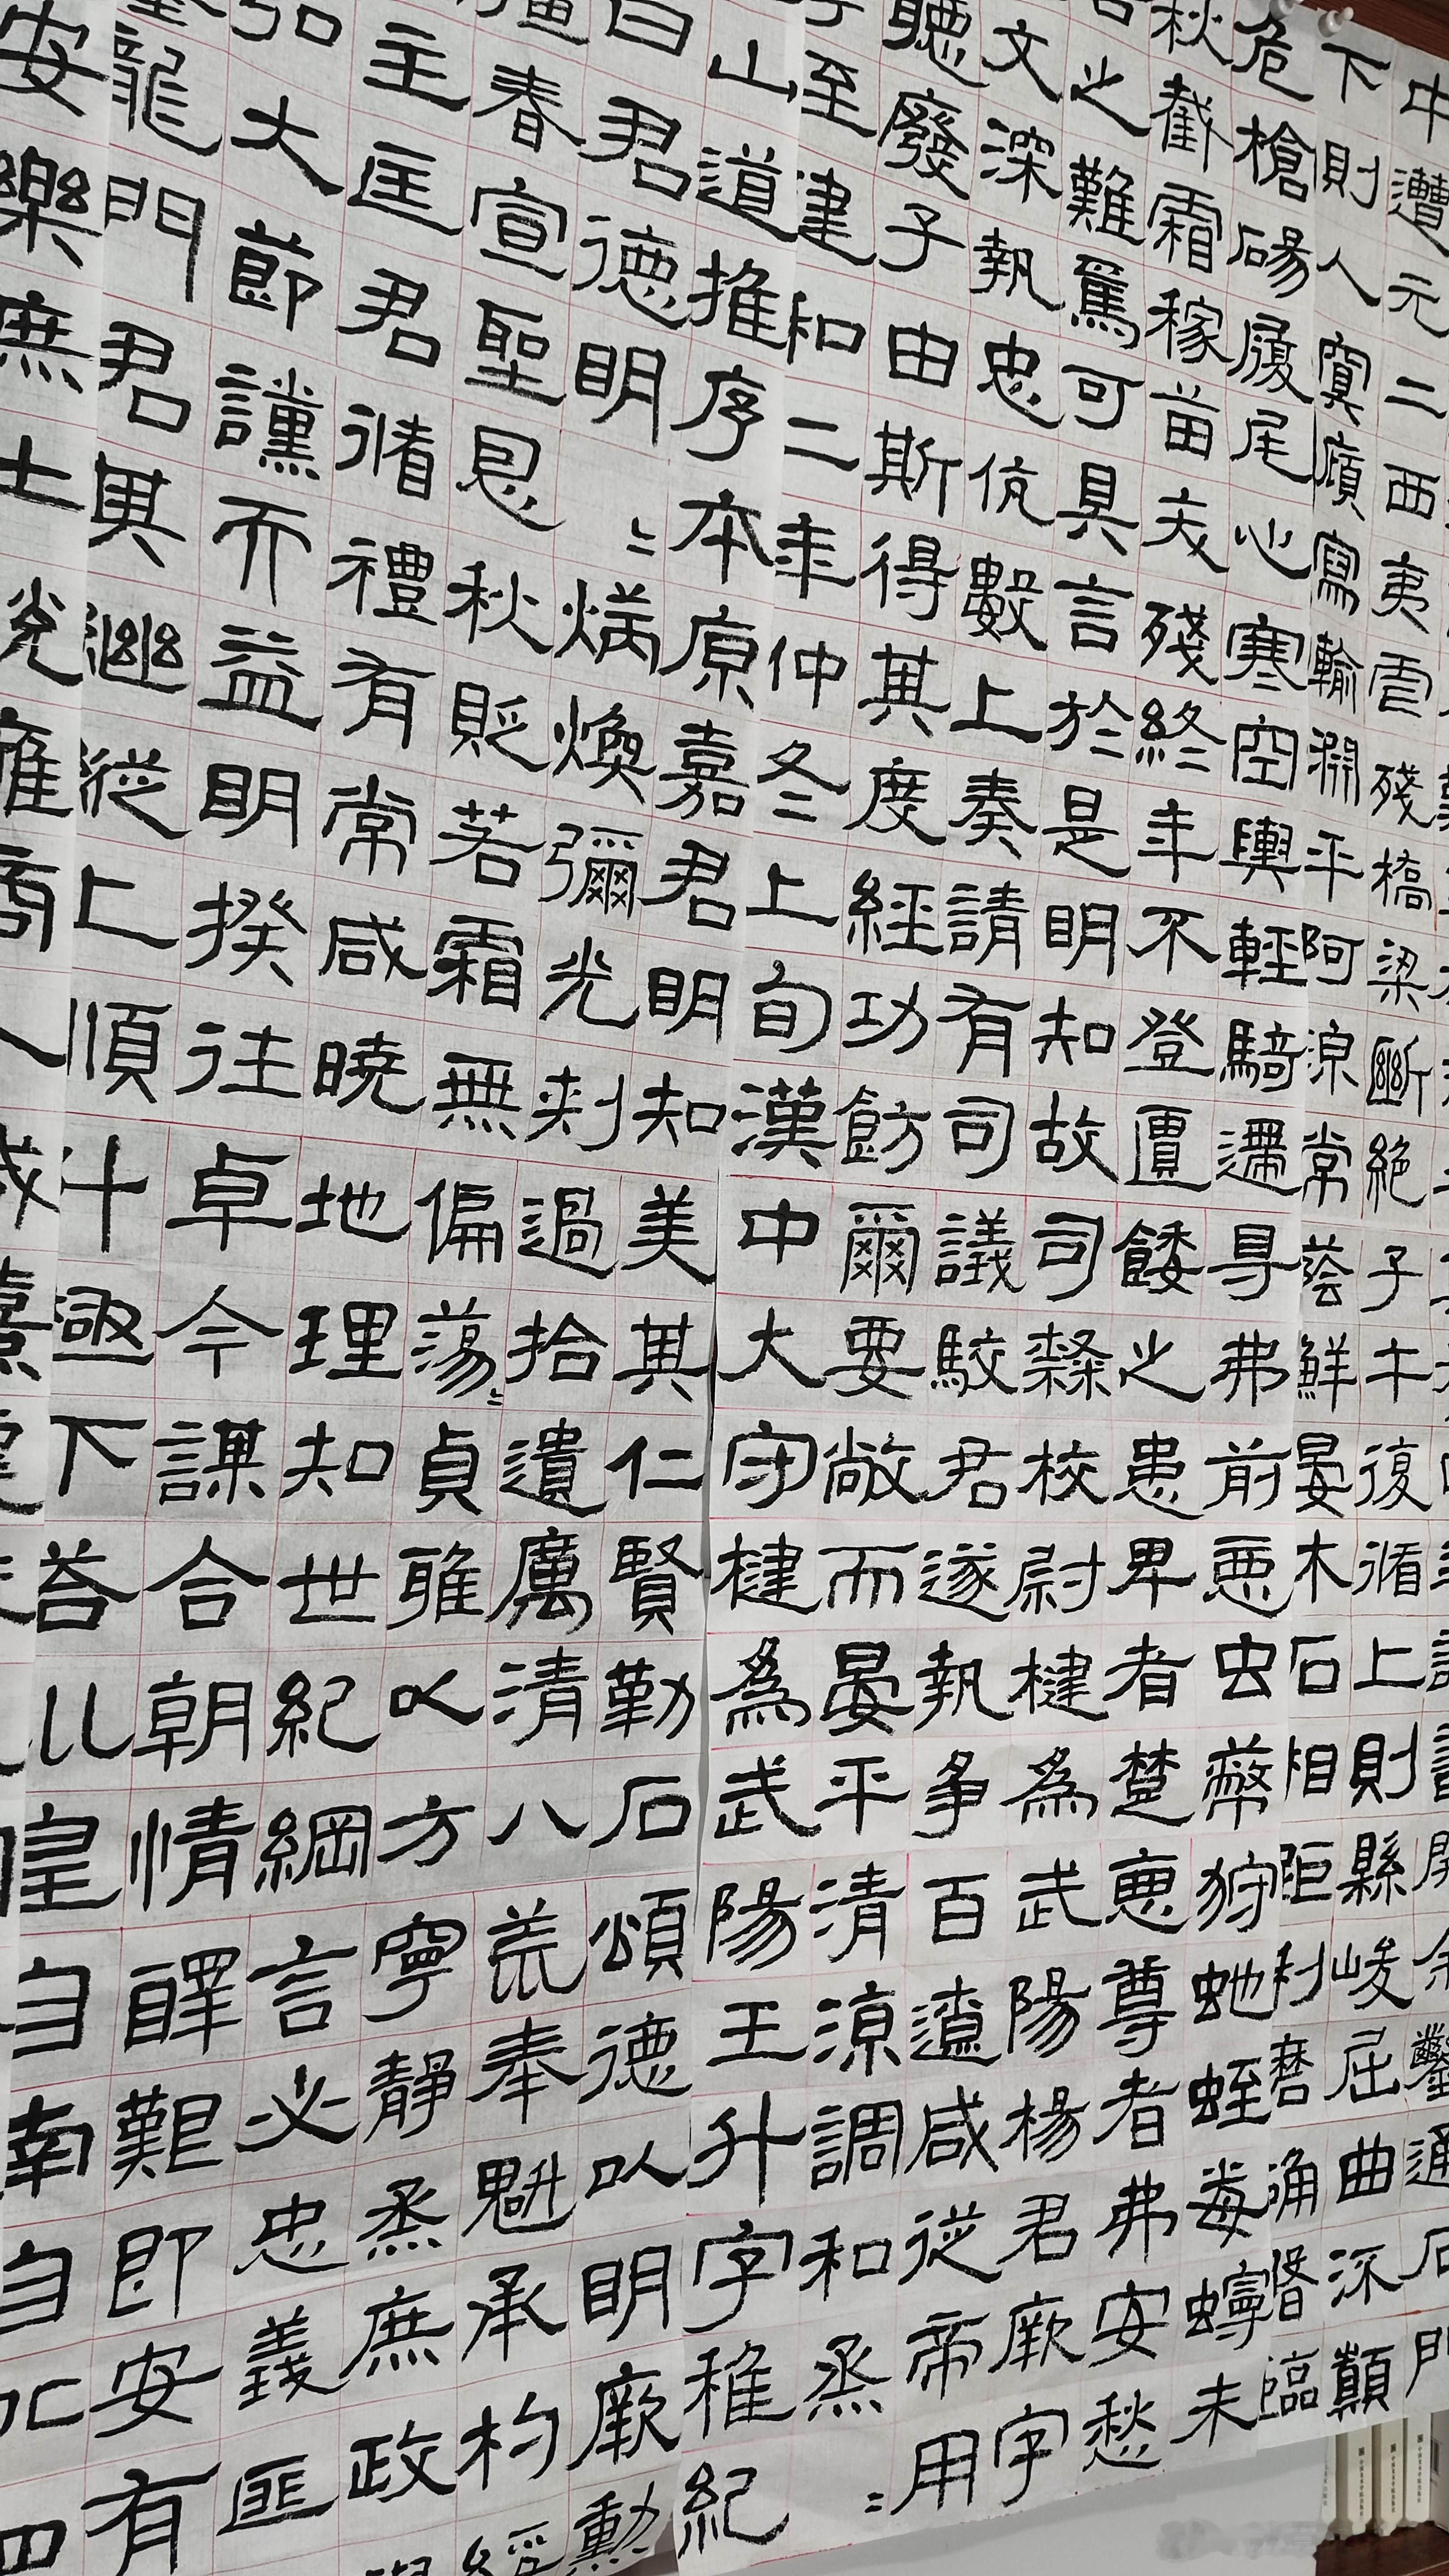 鑿通石門
中遭元二西夷虐殘橋梁斷絕子午復循上則縣峻屈曲流顛
下則入冥廎寫輸淵平阿涼常蔭鮮晏木石相距利磨确磐臨
危槍碭履尾心寒空輿輕騎遰㝵弗前惡虫蔽狩虵蛭毒蟃未
秋截霜稼苗夭殘終年不登匱餧之患卑者楚惡尊者弗安愁
苦之難焉可具言於是明知故司隸校尉楗為武陽楊君厥字
文深執忠伉數上奏請有司議駮君遂執爭百遼咸從帝用
聽廢子由斯得其度經功飭爾要敞而晏平清涼調和烝〻
至建和二年仲冬上旬漢中大守楗為武陽王升字稚紀
山道推序本原嘉君明知美其仁賢勒石頌德以明厥勳
曰君德明〻炳煥彌光刺過拾遺厲清八荒奉魁承杓綏
春宣聖恩秋貶若霜無偏蕩〻貞雅以方寧靜烝庶政
主匡君循禮有常咸曉地理知世紀綱言必忠義匪
弘大節讜而益明揆往卓今謀合朝情醳艱即安有
龍門君其繼縱上順斗極下荅巛皇自南自北四
安樂庶士悅雍商人咸憘